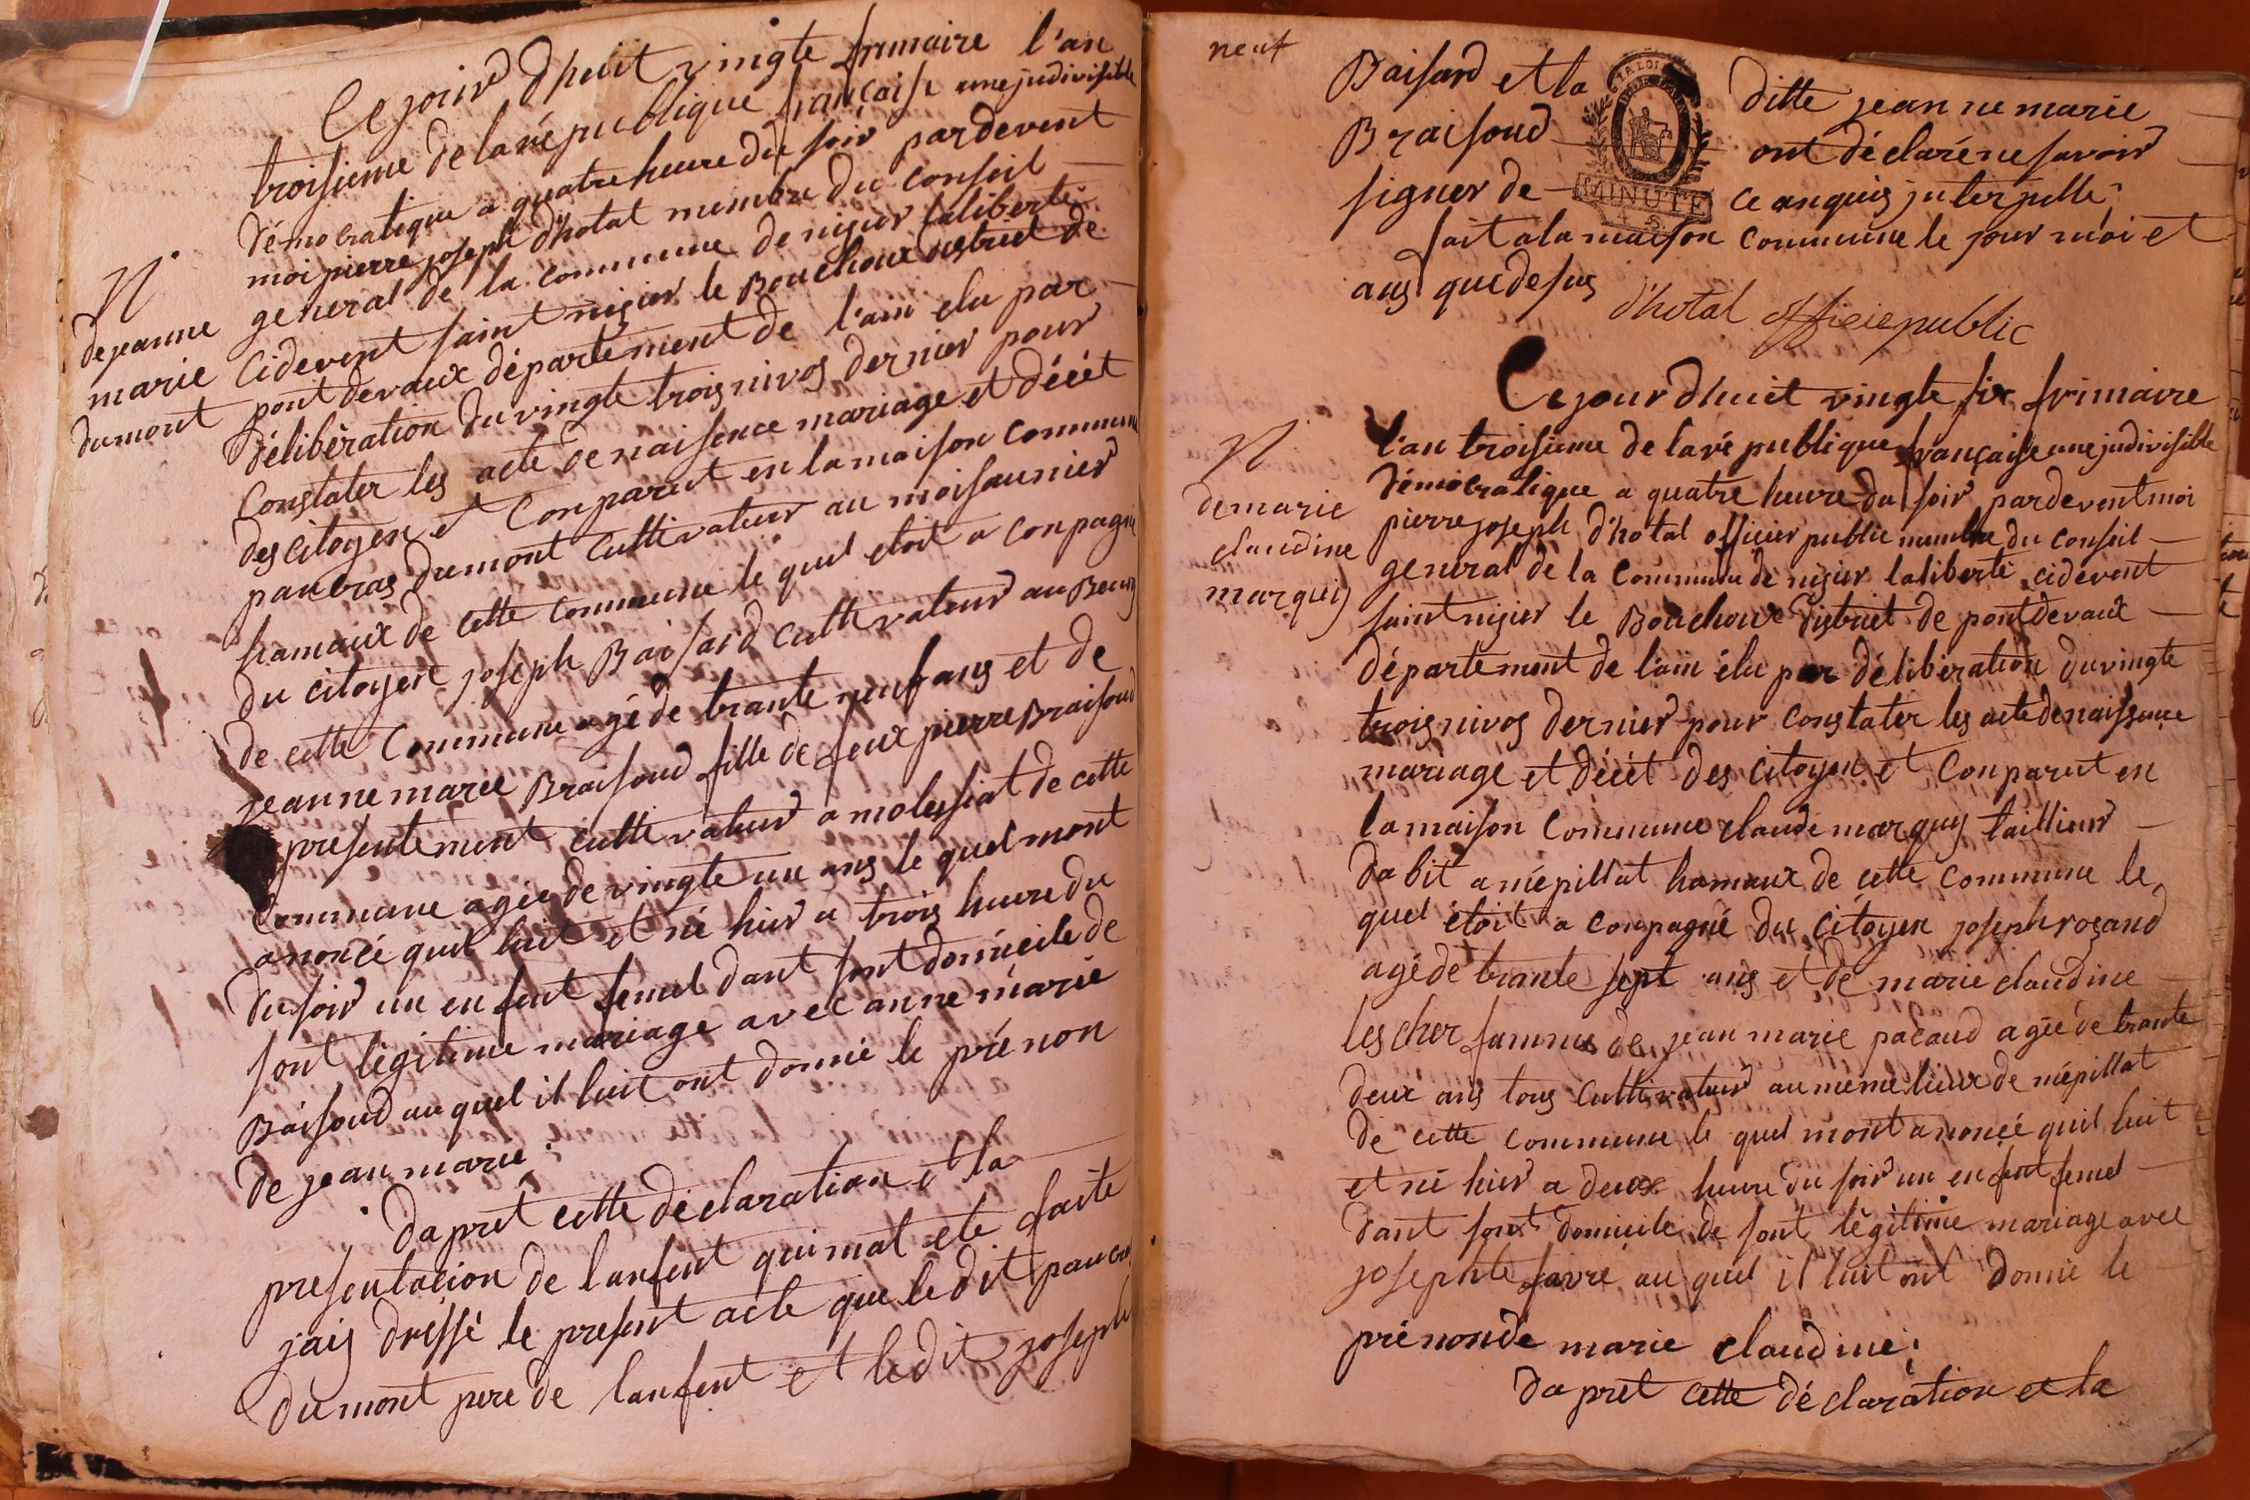 Ce jour d'huit vingte frimaire l'an
troisieme de la république française une judivisible
démocratique a quatre heure du soir pardevent
moi pierre joseph d'hotal membre du conseil
general de la commune de nisier laliberté
cidevent saint nisier le Bouchoux distriet de
pont devaux département de l'ain elu par
délibération du vingte trois nivos dernier pour
constater les acte de naisence mariage et décét
des citoyen et Conparut en la maison commune
pancras dumont cultivateur au moisaunier
hamaux de cette commune le quel etoit a conpagné
du citoyen joseph Baisard cultivateur au
de cette commune agé de trante neuf ans et de
jeanne marie Braisoud fille de feux pierre Braisoud
presentement cultivateur a molessiat de cette
commune agée de vingte un ans le quel mont
anoncé quil luit et né hier a trois heure du
du soir un enfent femel dant sont domicile de
sont légitime mariage avec anne marie
Baisoud au quel il luit ont donnié le prénon
de jean marie.
dapret cette déclaration et la
presentacion de lanfent qui mat ete faite
jais dressé le present acte que ledit pancras
dumont pere de lanfent et ledit joseph
N
de jeanne
marie
dumont
neuf
Baisard et la ditte jeanne marie
Braisoud ont déclaré ne savoir
signer de ce anquis juterpellé
LA LOI
MINUTE
fait a la maison commune le jour moi et
ans que desus
d'hotal officie public
Ce jour d'huit vingte six frimaire
l'an troisieme de la ré publique française une judivisible
démocratique a quatre heure du soir pardevent moi
pierre joseph d'hotal officier public membre du conseil
general de la commune de nisier laliberté cidevent
saint nisier le Bouchoux distriet de pont devaux
département de l'ain élu par délibération du vingte
trois nivos dernier pour constater les acte de naissence
mariage et décét des citoyen et Conparut en
la maison commune claude marquis taillieur
dabit a mépillat hamaux de cette commune le
quel étoit a conpagné du citoyen joseph rosand
agé de trante sept ans et de marie claudine
lescher famme de jean marie pacaud agée de trante
deux ans tous cultivateur au meme lieux de mépillat
de cette commune le quel mont anoncé quil luit
et né hier a deux heure du soir un enfent femel
dant sont domicile de sont légitime mariage avec
josephte favre au quel il luit ont donnié le
prénon de marie claudine.
dapret cette déclaration et la
N
de marie
claudine
marquis